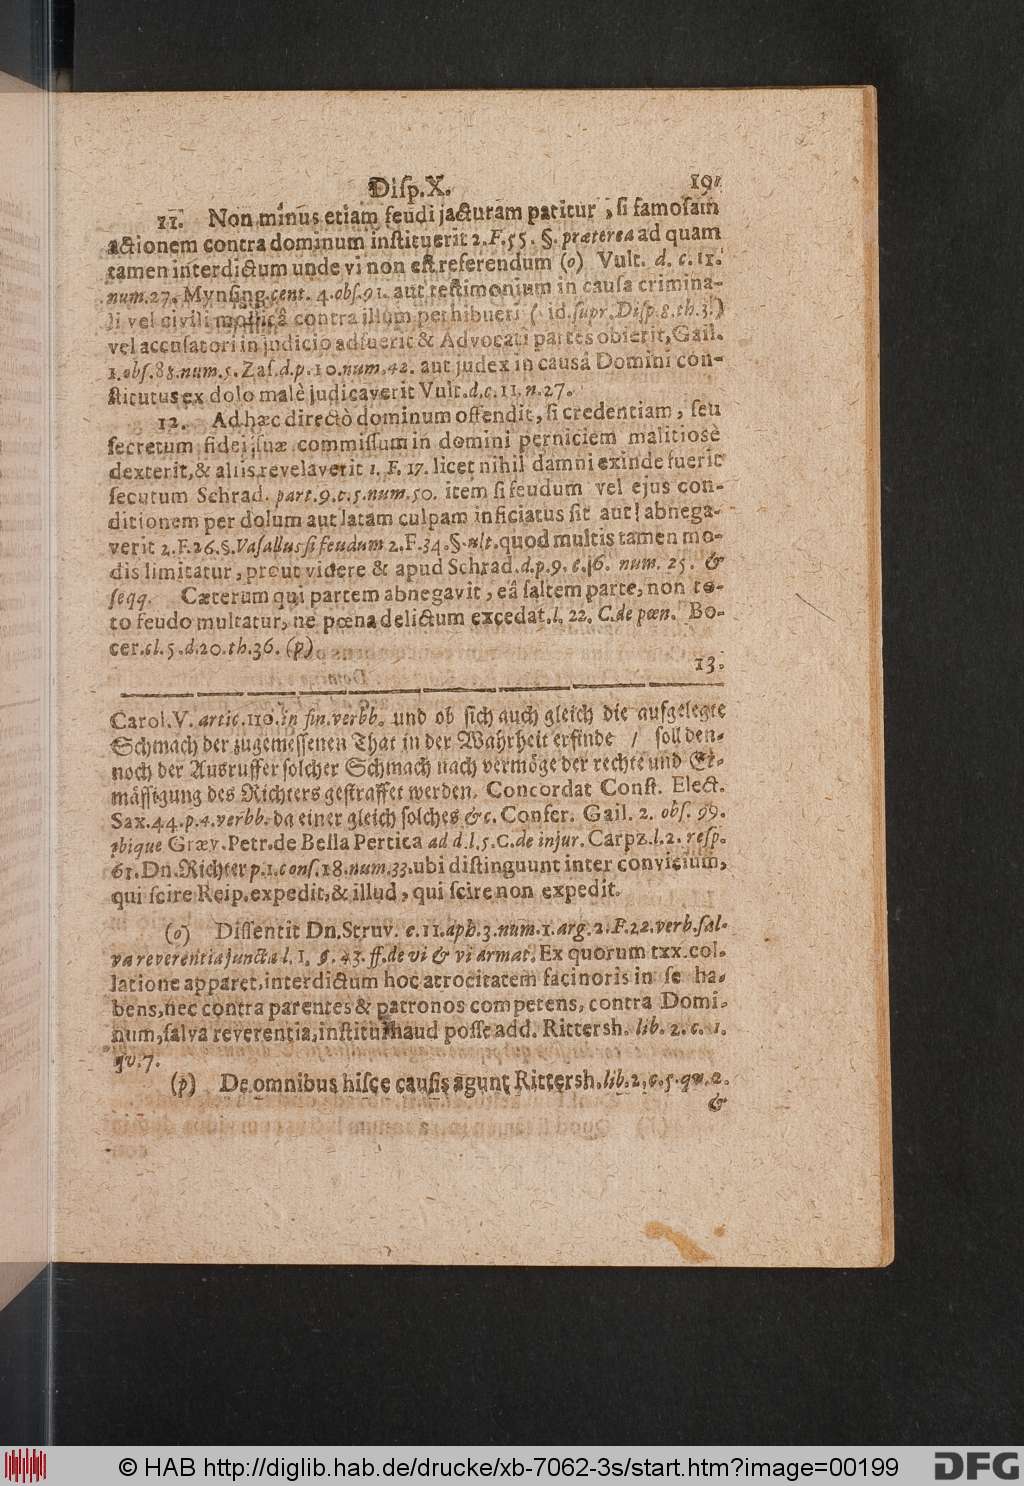 Disp. X. 191
11. Non minus etiam feudi jacturam patitur, si famosam
actionem contra dominum instituerit 2. F. 55. §. præterea ad quam
tamen interdictum unde vi non est referendum (o) Vult. d. c. 11.
num. 27. Mynsing. cent. 4. obs. 91. aut testimonium in causa crimina-
li vel civili contra illum perhibuerit ( id. supr. Disp. 8. th. 3.)
vel accusatori in judicio adfuerit & Advocati partes obierit, Gail.
1. obs. 88. num. 5. Zas. d. p. 10. num. 42. aut judex in causâ Domini con-
stitutus ex dolo malè judicaverit Vult. d. c. 11. n. 27.
12. Ad hæc directò dominum offendit, si credentiam, seu
secretum fidei suæ commissum in domini perniciem malitiosè
dexterit, & aliis revelaverit 1. F. 17. licet nihil damni exinde fuerit
secutum Schrad. part. 9. c. 5. num. 50. item si feudum vel ejus con-
ditionem per dolum aut latam culpam inficiatus sit aut abnega-
verit 2. F. 26. §. Vasallus si feudum 2. F. 34. §. ult. quod multis tamen mo-
dis limitatur, prout videre & apud Schrad. d. p. 9. c. 36. num. 25. &
seqq. Cæterum qui partem abnegavit, eâ saltem parte, non to-
to feudo multatur, ne pœna delictum excedat. l. 22. C. de pœn. Bo-
cer. cl. 5. d. 20. th. 36. (p)
13.
Carol. V. artic. 110. in fin. verbb. und ob sich auch gleich die aufgelegte
Schmach der zugemessenen That in der Wahrheit erfinde / soll den-
noch der Ausruffer solcher Schmach nach vermöge der rechte und Er-
mässigung des Richters gestraffet werden. Concordat Const. Elect.
Sax. 44. p. 4. verbb. da einer gleich solches &c. Confer. Gail. 2. obs. 99.
ibique Græv. Petr. de Bella Pertica ad d. l. 5. C. de injur. Carpz. l. 2. resp.
61. Dn. Richter p. 1. cons. 18. num. 33. ubi distinguunt inter convicium,
qui scire Reip. expedit, & illud, qui scire non expedit.
(o) Dissentit Dn. Struv. c. 11. aph. 3. num. 1. arg. 2. F. 22. verb. sal-
va reverentia juncta l. 1. §. 43. ff. de vi & vi armat. Ex quorum txx. col-
latione apparet, interdictum hoc atrocitatem facinoris in se ha-
bens, nec contra parentes & patronos competens, contra Domi-
num, salva reverentia, institui haud posse add. Rittersh. lib. 2. c. 1.
qv. 7.
(p) De omnibus hisce causis agunt Rittersh. lib. 2. c. 5. qu. 2.
&
© HAB http://diglib.hab.de/drucke/xb-7062-3s/start.htm?image=00199
DFG